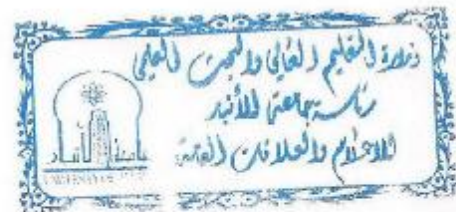 وزارة التعليم العالي والبحث العلمي
رئاسة جامعة الأنبار
الاعلام والعلاقات العامة